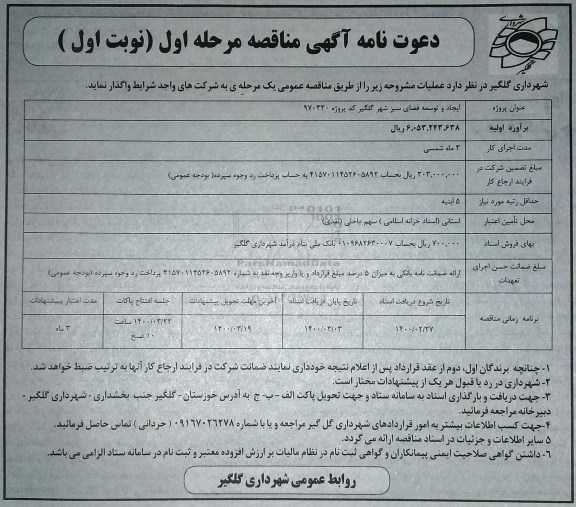 شهرداری
گلگیر
دعوت نامه آگهی مناقصه مرحله اول (نوبت اول )
شهرداری گلگیر در نظر دارد عملیات مشروحه زیر را از طریق مناقصه عمومی یک مرحله ی به شرکت های واجد شرایط واگذار نماید.
عنوان پروژه ایجاد و توسعه فضای سبز شهر گلگیر کد پروژه ۹۷۰۳۳۰
برآورد اولیه ۶,۰۵۳,۲۴۳,۶۳۸ ریال
مدت اجرای کار ۳ ماه شمسی
مبلغ تضمین شرکت در فرایند ارجاع کار ۳۰۳,۰۰۰,۰۰۰ ریال بحساب ۴۱۵۷۰۱۱۴۵۲۶۰۵۸۹۲ به حساب پرداخت رد وجوه سپرده( بودجه عمومی)
حداقل رتبه مورد نیاز ۵ ابنیه
محل تأمین اعتبار استانی (اسناد خزانه اسلامی ) سهم داخلی (نقدی)
بهای فروش اسناد ۷۰۰,۰۰۰ ریال بحساب ۰۱۰۹۶۸۲۶۳۰۰۰۷ بانک ملی بنام درآمد شهرداری گلگیر
مبلغ ضمانت حسن اجرای تعهدات ارائه ضمانت نامه بانکی به میزان ۵ درصد مبلغ قرارداد و یا واریز وجه نقد به شماره ۴۱۵۷۰۱۱۴۵۲۶۰۵۸۹۲ پرداخت رد وجوه سپرده (بودجه عمومی)
برنامه زمانی مناقصه
تاریخ شروع دریافت اسناد تاریخ پایان دریافت اسناد آخرین مهلت تحویل پیشنهادات جلسه افتتاح پاکات مدت اعتبار پیشنهادات
۱۴۰۰/۰۲/۲۷ ۱۴۰۰/۰۳/۰۳ ۱۴۰۰/۰۳/۱۹ ۱۴۰۰/۰۳/۲۲ ساعت ۱۰ صبح ۳ ماه
۱- چنانچه برندگان اول، دوم از عقد قرارداد پس از اعلام نتیجه خودداری نمایند ضمانت شرکت در فرایند ارجاع کار آنها به ترتیب ضبط خواهد شد.
۲- شهرداری در رد یا قبول هر یک از پیشنهادات مختار است.
۳- جهت دریافت و بارگذاری اسناد به سامانه ستاد و جهت تحویل پاکت الف - ب- ج به آدرس خوزستان - گلگیر جنب بخشداری - شهرداری گلگیر - دبیرخانه مراجعه فرمائید.
۴-جهت کسب اطلاعات بیشتر به امور قراردادهای شهرداری گل گیر مراجعه و یا با شماره ۰۹۱۶۷۰۲۶۲۷۸ ( حردانی ) تماس حاصل فرمائید.
۵ سایر اطلاعات و جزئیات در اسناد مناقصه ارائه می گردد.
۶- داشتن گواهی صلاحیت ایمنی پیمانکاران و گواهی ثبت نام در نظام مالیات بر ارزش افزوده معتبر و ثبت نام در سامانه ستاد الزامی می باشد.
روابط عمومی شهرداری گلگیر
ParsNamadData